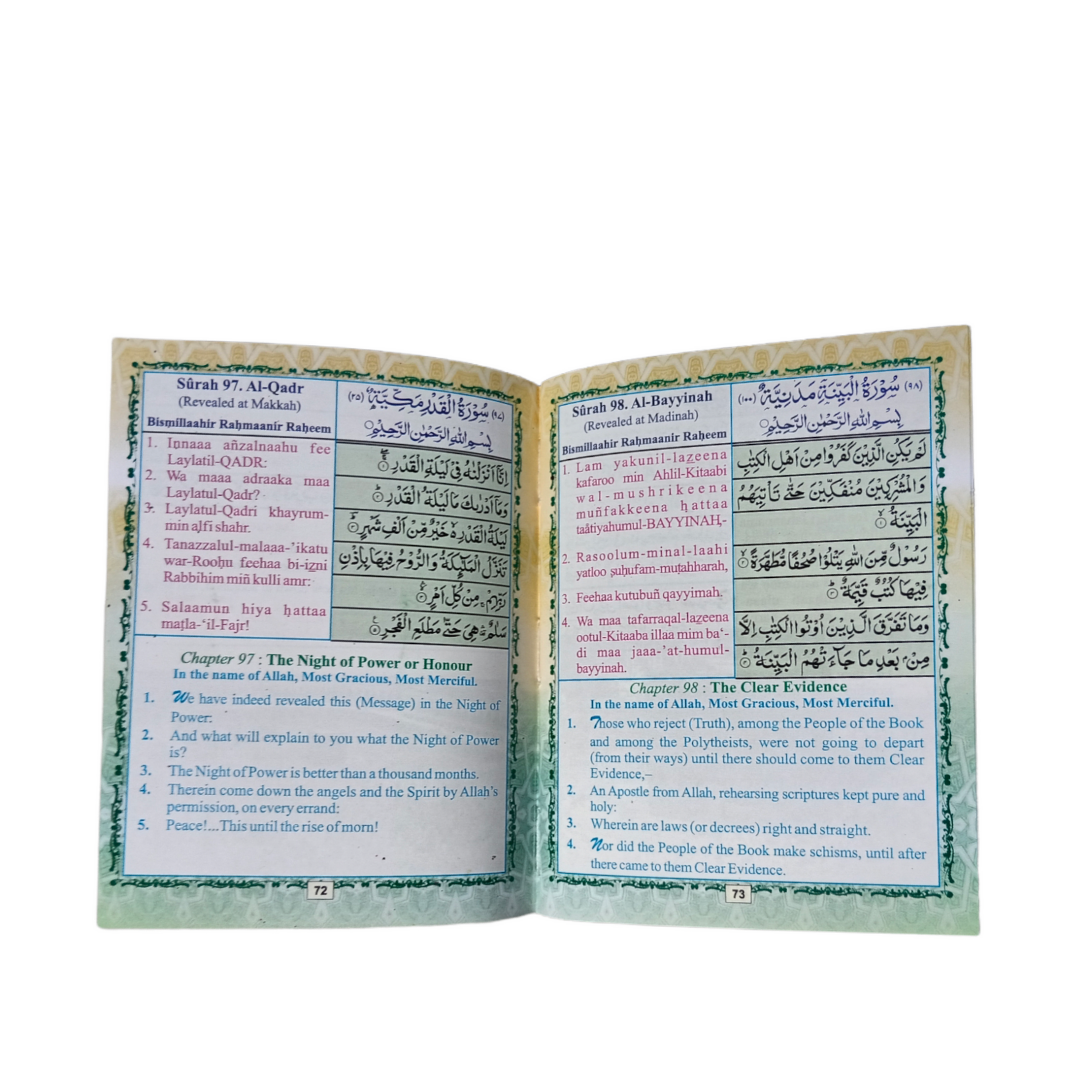 Sûrah 97. Al-Qadr
(Revealed at Makkah)
Bismillaahir Raḥmaanir Raḥeem
1. Innaaa añzalnaahu fee
Laylatil-QADR:
2. Wa maaa adraaka maa
Laylatul-Qadr?
3. Laylatul-Qadri khayrum-
min aļfi shahr.
4. Tanazzalul-malaaa-’ikatu
war-Rooḥu feehaa bi-iẕni
Rabbihim miñ kulli amr:
5. Salaamun hiya ḥattaa
maṭla-‘il-Fajr!
(٩٧) سُوْرَةُ الْقَدْرِ مَكِّيَّةٌ (٢٥)
بِسْمِ اللهِ الرَّحْمٰنِ الرَّحِيْمِ
اِنَّآ اَنْزَلْنٰهُ فِىْ لَيْلَةِ الْقَدْرِ ۝١
وَمَآ اَدْرٰىكَ مَا لَيْلَةُ الْقَدْرِ ۝٢
لَيْلَةُ الْقَدْرِ ۙ خَيْرٌ مِّنْ اَلْفِ شَهْرٍ ۝٣
تَنَزَّلُ الْمَلٰٓئِكَةُ وَالرُّوْحُ فِيْهَا بِاِذْنِ
رَبِّهِمْ ۚ مِنْ كُلِّ اَمْرٍ ۝٤
سَلٰمٌ ۛ هِىَ حَتّٰى مَطْلَعِ الْفَجْرِ ۝٥
Chapter 97 : The Night of Power or Honour
In the name of Allah, Most Gracious, Most Merciful.
1. We have indeed revealed this (Message) in the Night of
Power:
2. And what will explain to you what the Night of Power
is?
3. The Night of Power is better than a thousand months.
4. Therein come down the angels and the Spirit by Allah’s
permission, on every errand:
5. Peace!...This until the rise of morn!
72
Sûrah 98. Al-Bayyinah
(Revealed at Madinah)
Bismillaahir Raḥmaanir Raḥeem
1. Lam yakunil-laẕeena
kafaroo min Ahlil-Kitaabi
wal-mushrikeena
muñfakkeena ḥattaa
taâtiyahumul-BAYYINAH,-
2. Rasoolum-minal-laahi
yatloo ṣuḥufam-muṭahharah,
3. Feehaa kutubuñ qayyimah.
4. Wa maa tafarraqal-laẕeena
ootul-Kitaaba illaa mim ba‘-
di maa jaaa-’at-humul-
bayyinah.
(٩٨) سُوْرَةُ الْبَيِّنَةِ مَدَنِيَّةٌ (١٠٠)
بِسْمِ اللهِ الرَّحْمٰنِ الرَّحِيْمِ
لَمْ يَكُنِ الَّذِيْنَ كَفَرُوْا مِنْ اَهْلِ الْكِتٰبِ
وَالْمُشْرِكِيْنَ مُنْفَكِّيْنَ حَتّٰى تَاْتِيَهُمُ
الْبَيِّنَةُ ۝١
رَسُوْلٌ مِّنَ اللهِ يَتْلُوْا صُحُفًا مُّطَهَّرَةً ۝٢
فِيْهَا كُتُبٌ قَيِّمَةٌ ۝٣
وَمَا تَفَرَّقَ الَّذِيْنَ اُوْتُوا الْكِتٰبَ اِلَّا
مِنْۢ بَعْدِ مَا جَآءَتْهُمُ الْبَيِّنَةُ ۝٤
Chapter 98 : The Clear Evidence
In the name of Allah, Most Gracious, Most Merciful.
1. Those who reject (Truth), among the People of the Book
and among the Polytheists, were not going to depart
(from their ways) until there should come to them Clear
Evidence,–
2. An Apostle from Allah, rehearsing scriptures kept pure and
holy:
3. Wherein are laws (or decrees) right and straight.
4. Nor did the People of the Book make schisms, until after
there came to them Clear Evidence.
73